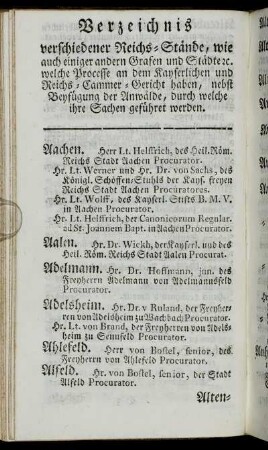 Verzeichnis
verschiedener Reichs-Stände, wie
auch einiger andern Grafen und Städte ꝛc.
welche Processe an dem Kayserlichen und
Reichs-Cammer-Gericht haben, nebst
Beyfügung der Anwälde, durch welche
ihre Sachen geführet werden.
Aachen. Herr Lt. Helffrich, des Heil. Röm.
Reichs Stadt Aachen Procurator.
Hr. Lt. Werner und Hr. Dr. von Sachs, des
Königl. Schöffen-Stuhls der Kays. freyen
Reichs Stadt Aachen Procuratores.
Hr. Lt. Wolff, des Kayserl. Stifts B. M. V.
in Aachen Procurator.
Hr. Lt. Helffrich, der Canonicorum Regular.
ad St. Joannem Bapt. in Aachen Procurator.
Aalen. Hr. Dr. Wickh, der Kayserl. und des
Heil. Röm. Reichs Stadt Aalen Procurat.
Adelmann. Hr. Dr. Hoffmann, jun. des
Freyherrn Adelmann von Adelmannsfeld
Procurator.
Adelsheim. Hr. Dr. v Ruland, der Freyher-
ren von Adelsheim zu Wachbach Procurator.
Hr. Lt. von Brand, der Freyherren von Adels-
heim zu Sennfeld Procurator.
Ahlefeld. Herr von Bostel, senior, des
Freyherrn von Ahlefeld Procurator.
Alfeld. Hr. von Bostel, senior, der Stadt
Alfeld Procurator.
Alten-